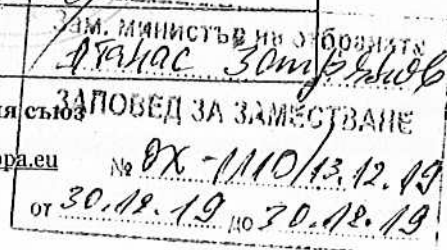 Зам. министър на отбраната
Атанас Запрянов
ия съюз
ЗАПОВЕД ЗА ЗАМЕСТВАНЕ
opa.eu
№ ОХ-1110/13.12.19
от 30.12.19 до 30.12.19